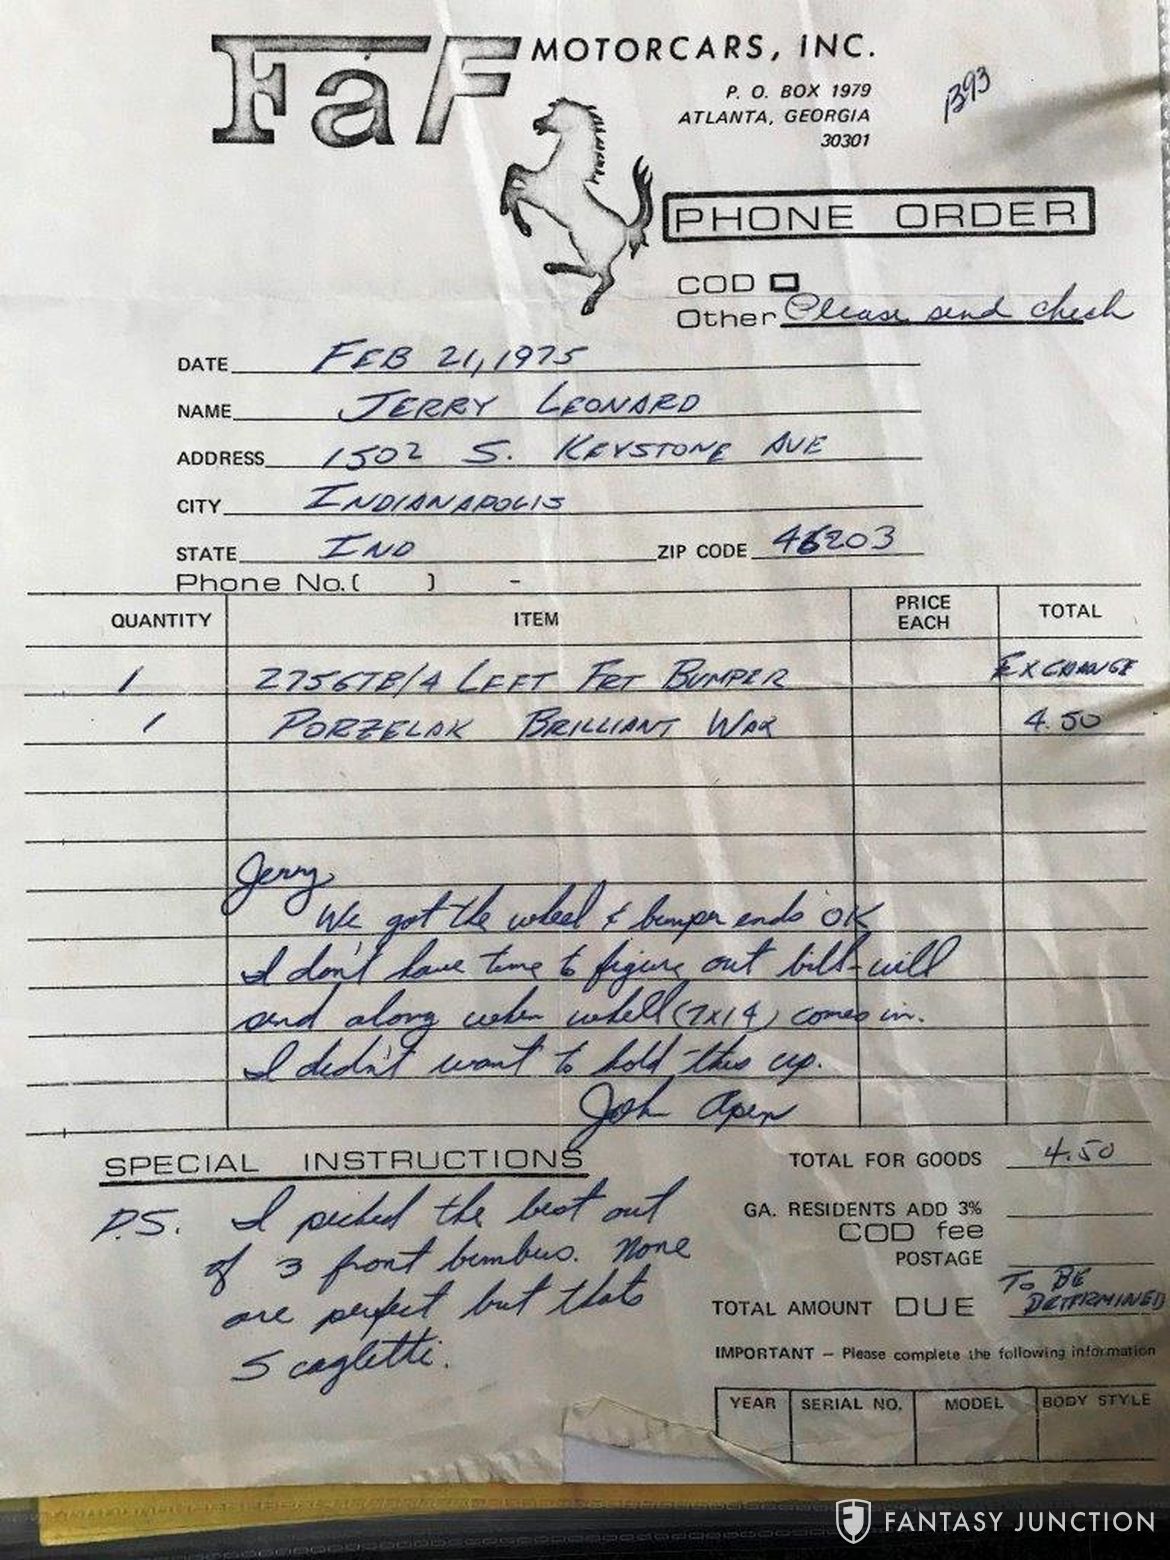 FaF MOTORCARS, INC.
P. O. BOX 1979
ATLANTA, GEORGIA
30301
B93
PHONE ORDER
COD
Other Please send check
DATE FEB 21, 1975
NAME JERRY LEONARD
ADDRESS 1502 S. KEYSTONE AVE
CITY INDIANAPOLIS
STATE IND ZIP CODE 46203
Phone No. ( ) -
QUANTITY ITEM PRICE EACH TOTAL
1 275GTB/4 LEFT FRT BUMPER EXCHANGE
1 PORZELAK BRILLIANT WAX 4.50
Jerry
We got the wheel & bumper ends OK
I don't have time to figure out bill - will
send along when whell (7x14) comes in.
I didn't want to hold this up.
John Apen
SPECIAL INSTRUCTIONS
P.S. I picked the best out
of 3 front bumbus. None
are perfect but thats
Scagletti.
TOTAL FOR GOODS 4.50
GA. RESIDENTS ADD 3%
COD fee
POSTAGE
TOTAL AMOUNT DUE TO BE DETERMINED
IMPORTANT – Please complete the following information
YEAR SERIAL NO. MODEL BODY STYLE
FANTASY JUNCTION